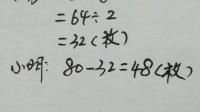 =64÷2
=32(枚)
小明: 80-32=48(枚)